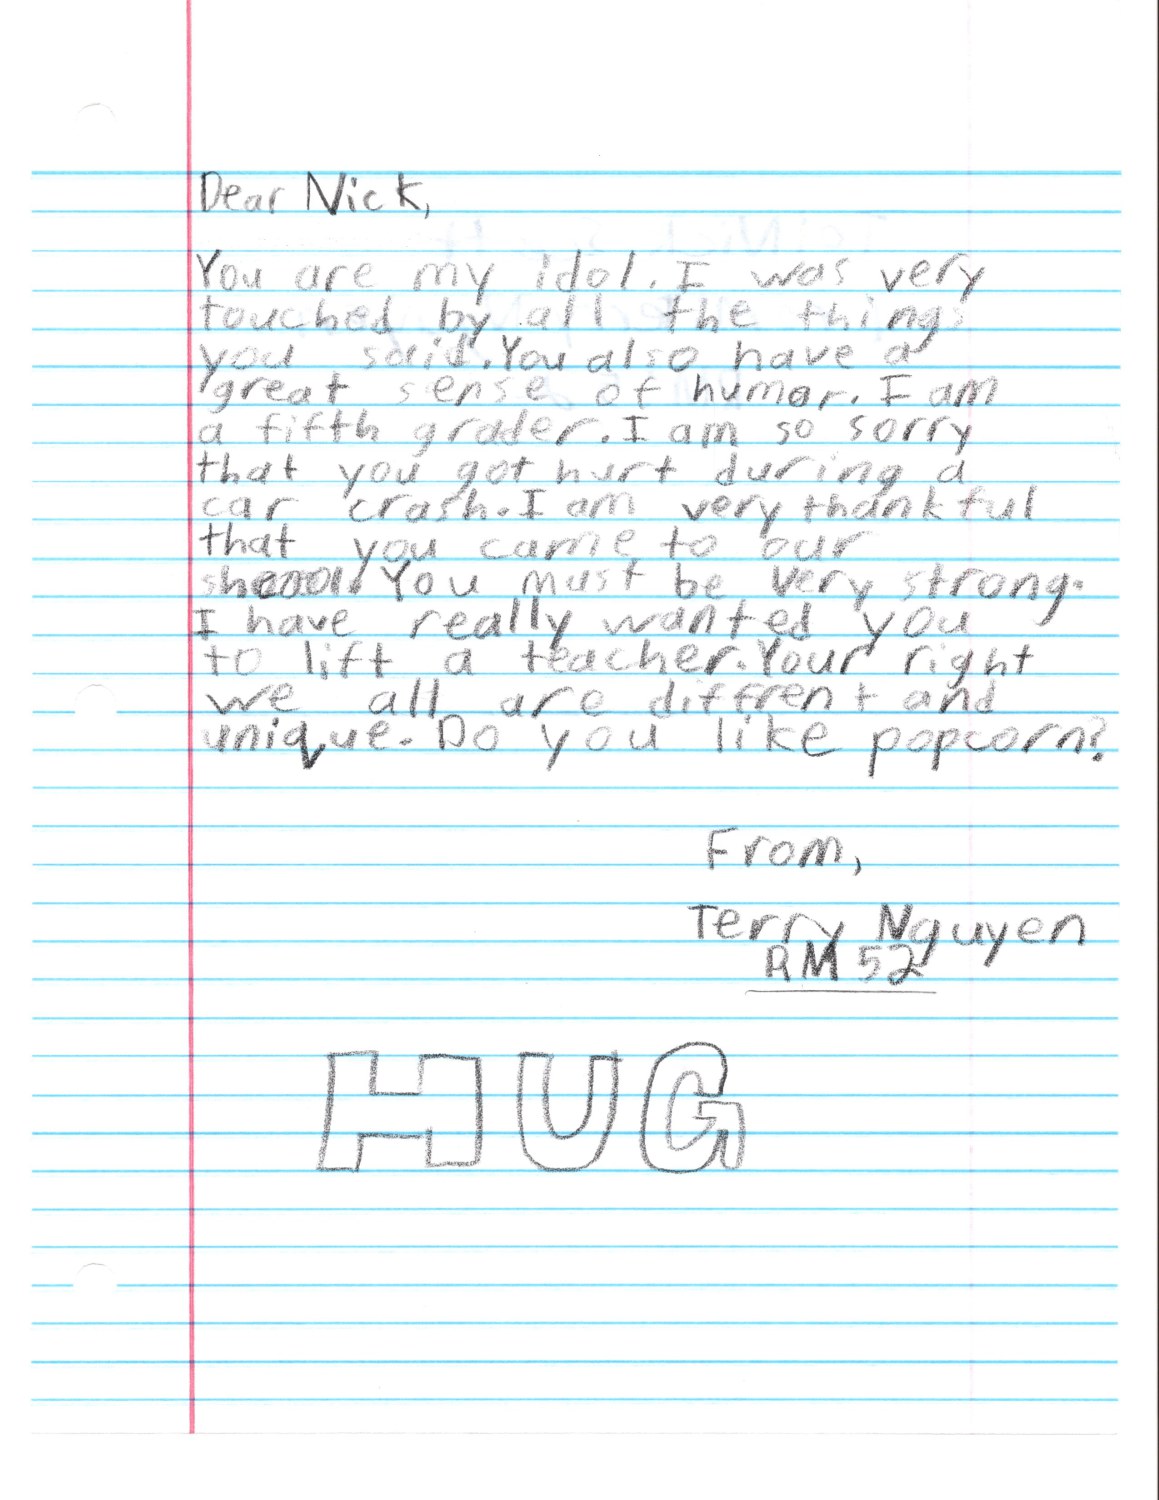 Dear Nick,
You are my idol. I was very
touched by all the things
you said. You also have a
great sense of humor. I am
a fifth grader. I am so sorry
that you got hurt during a
car crash. I am very thankful
that you came to our
You must be very strong.
I have really wanted you
to lift a teacher. Your right
we all are diffrent and
unique. Do you like popcorn?
From,
Terry Nguyen
RM 52
HUG